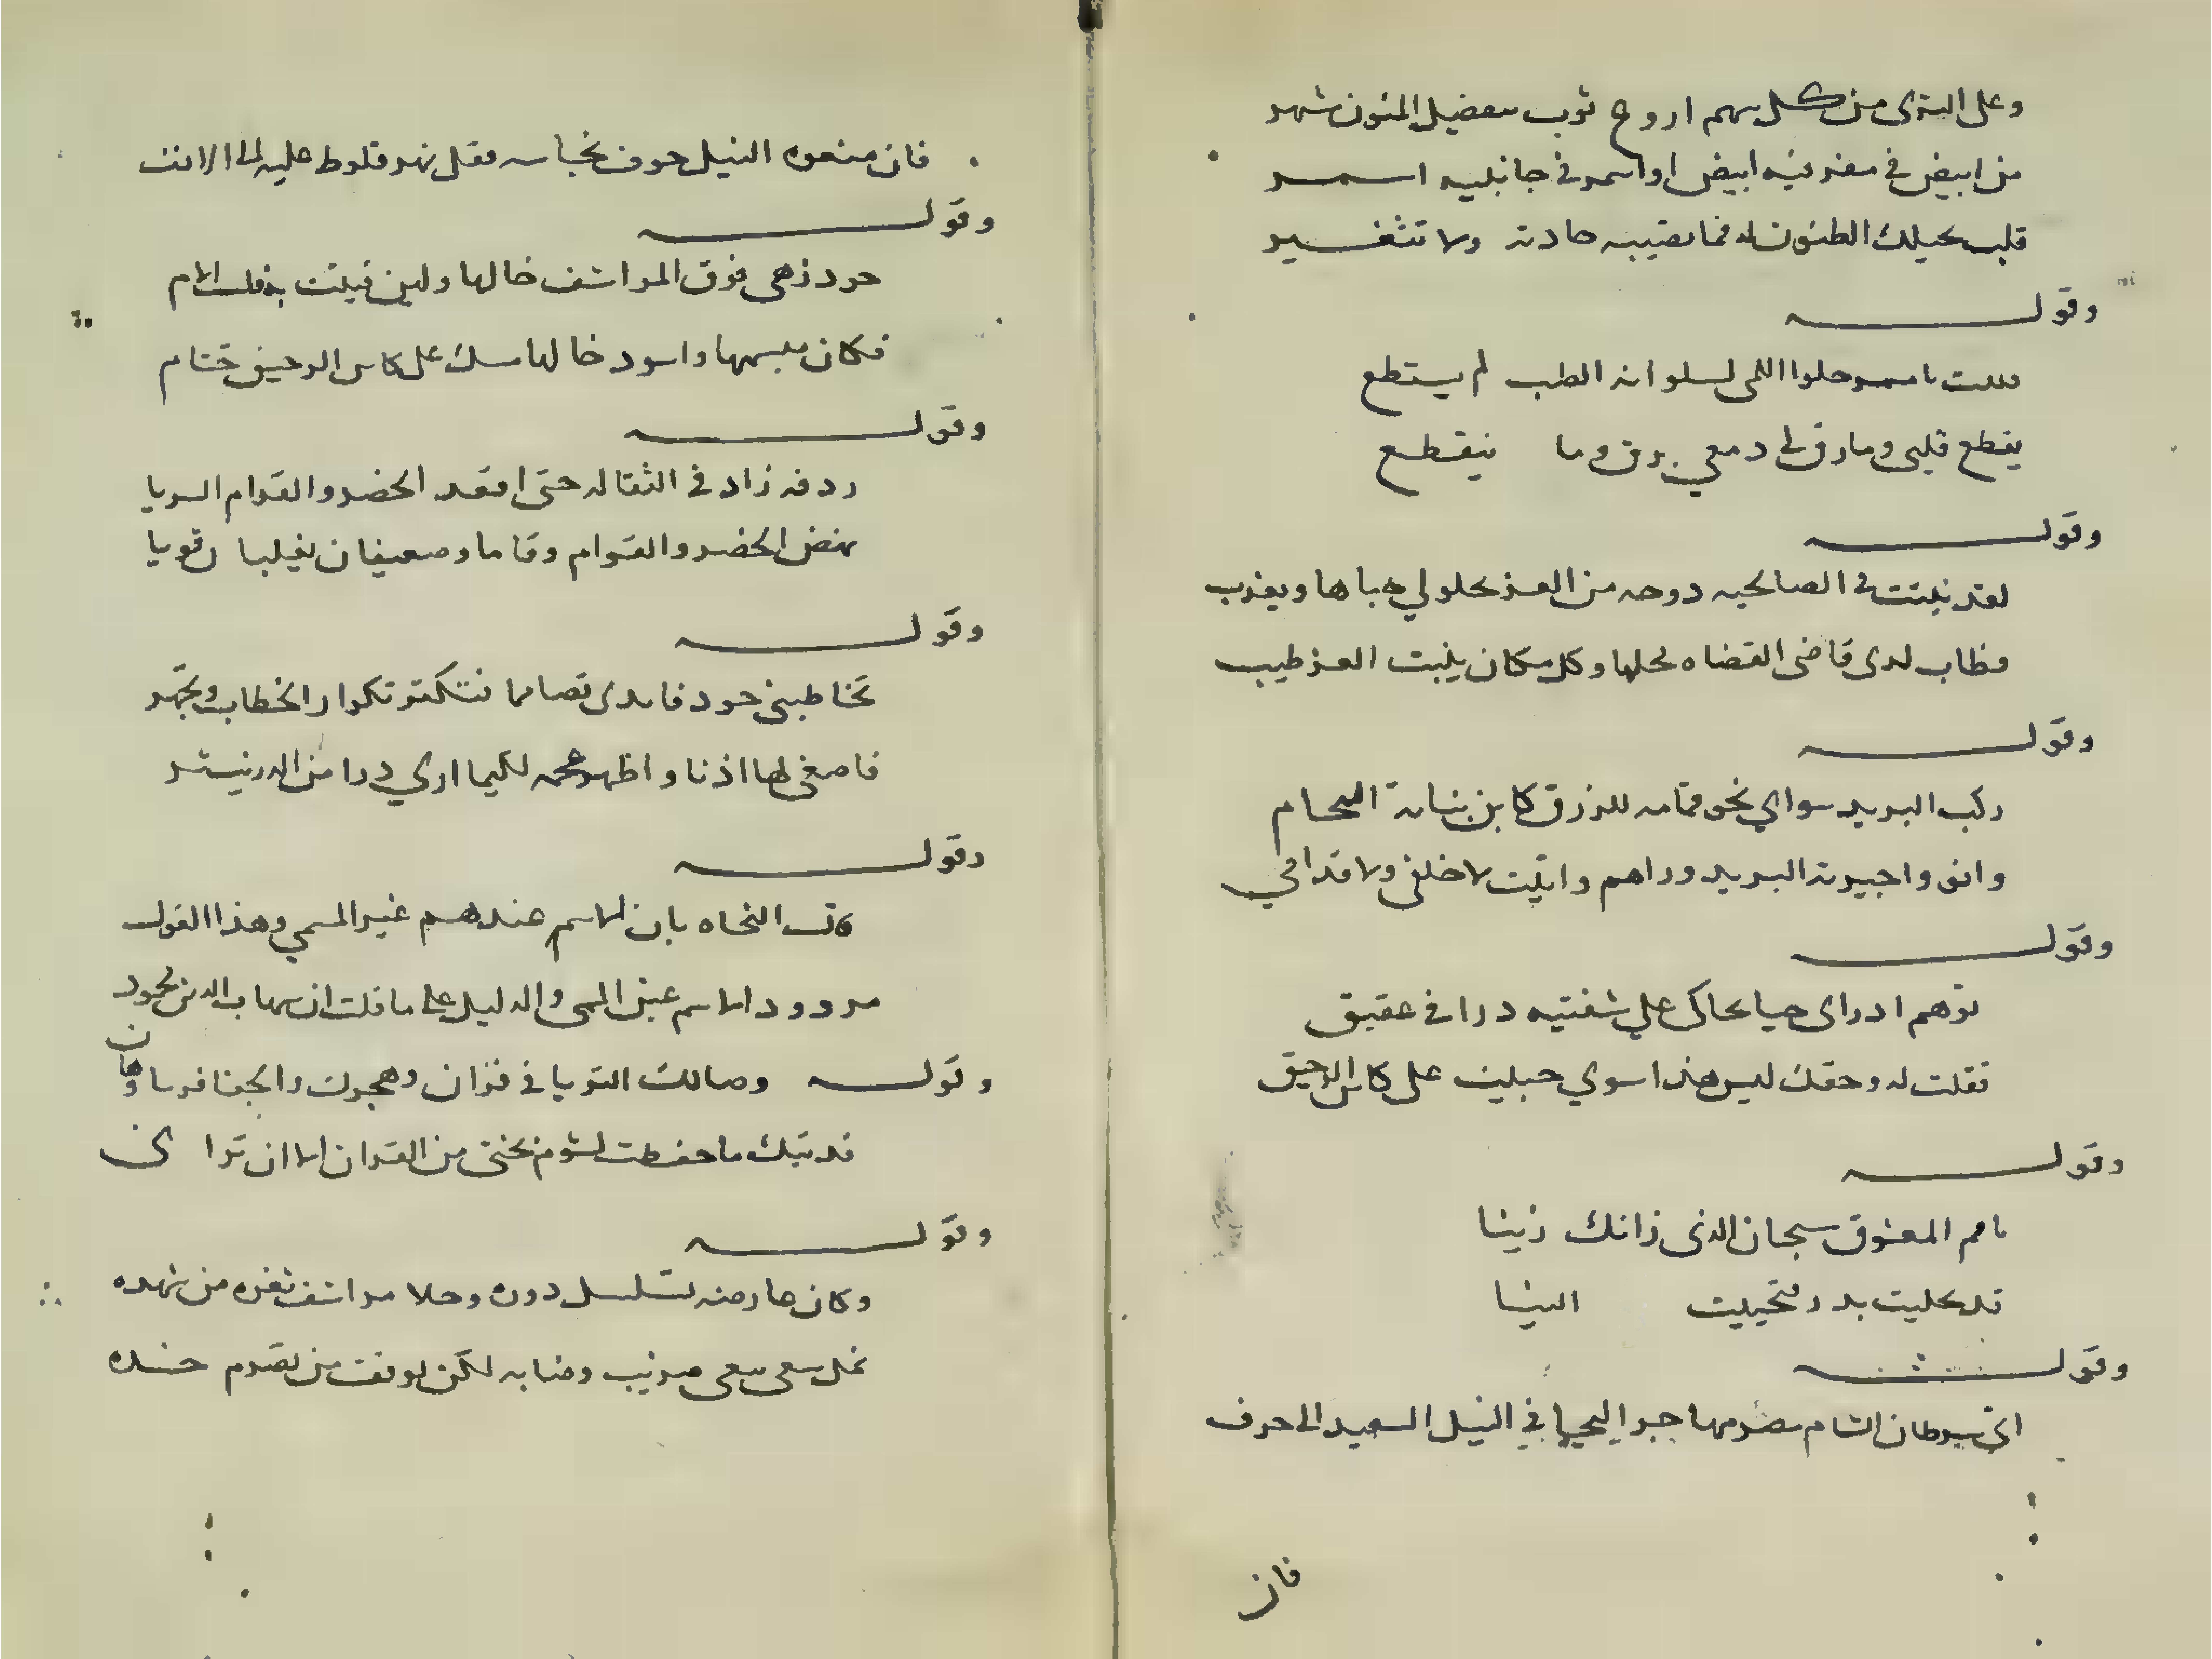 وعلى الثرى من كل سهم اروع ثوب بتفضيل المنون شهر
من ابيض في مفرقيه ابيض او اسمر في جانبيه اسمر
قلب يحيلك الظنون له فما تصيبه حادثة ولا تتغير
وقوله
حلوا اللمى لسلوانه القلب لم يستطع
يقطع قلبي وما رق لي دمعي يرق وما ينقطع
وقوله
لقد نبتت في الصالحيه دوحه من العز يحلو لي جباها ويعذب
وطاب لدى قاضى القضاه محلها وكل مكان ينبت العز طيب
وقوله
ركب البريد سواي نحو مقامه للرزق كابن نباتة
وانى واجيرة البريد وراهم واتيت لا خلفى ولا قدامي
وقوله
توهم اذ راى حبيا يحاكى علي شفتيه درا في عقيق
فقلت له وحقك ليس هذا سوي حبيبت على كاس الرحيق
وقوله
يامر المعشوق سبحان الذى زانك زينا
قد تحليت بدر فتحيليت الينا
وقوله
اتى سرطان الشام مصر مهاجرا ليحيا في النيل السعيد الى حرف
فان
فان منعوه النيل خوف نجاسه فقل نهر قلوط عليه الى الانف
وقوله
خود زهى فوق المراشف خالها ولين فتيت به فلست الام
فكان مبسمها واسود خالها مسك على كاس الرحيق ختام
وقوله
ردفه زاد في الثقاله حتى اقعد الخصر والقوام السويا
نهض الخصر والقوام وقاما وضعيفان يغلبان قويا
وقوله
تخاطبنى خود فابدى تصامما فتكثر تكرار الخطاب وتجهر
فاصغى لها اذنا واظهر عجمه لكيما اري درا من الدر ينثر
وقوله
قالت النحاه بان الاسم عندهم غير المسمي وهذا القول
مردود الاسم عين المسمى والدليل على ما قلت ان شهاب الدين محمود
وقوله وصالك الثريا في قران وهجرك والجفا فرسا رهان
فديتك ما حفظت لشوم بختى من القران الا لن ترانى
وقوله
وكان عارضه تسلسل دونه وحلا مراشف ثغره من شهده
نمل سعى يبغى رضابه لكن توقف من تضرم خده